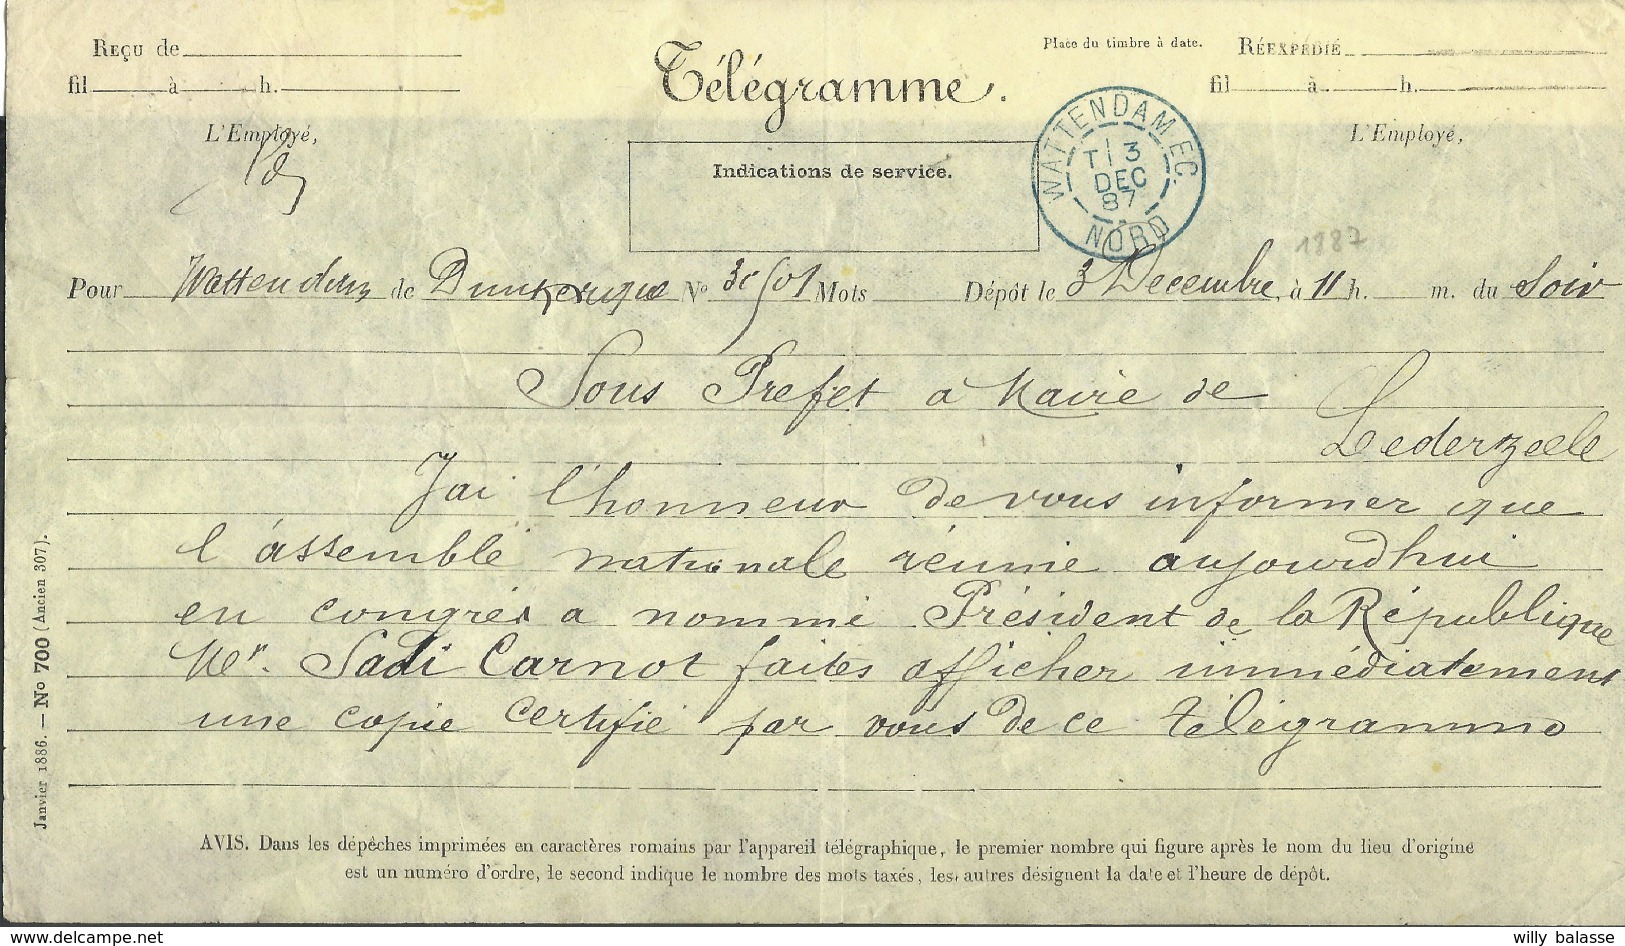 Reçu de
fil à h.
L'Employé,
Télégramme.
Indications de service.
Place du timbre à date.
Réexpédié
fil à h.
L'Employé,
WATTENDAM EC.
T 3
DEC
87
NORD
1887
Pour Wattendam de Dunkerque N° Mots Dépôt le 3 Decembre, à 11 h. m. du Soir
Sous Prefet a Maire de
Lederzeele
J'ai l'honneur de vous informer que
l'assemblé nationale réunie aujourdhui
en congrés a nommé Président de la République
Mr. Sadi Carnot faites afficher immédiatement
une copie certifié par vous de ce télégramme
Janvier 1886. — No 700 (Ancien 307).
AVIS. Dans les dépêches imprimées en caractères romains par l'appareil télégraphique, le premier nombre qui figure après le nom du lieu d'origine
est un numéro d'ordre, le second indique le nombre des mots taxés, les autres désignent la date et l'heure de dépôt.
www.delcampe.net
willy balasse